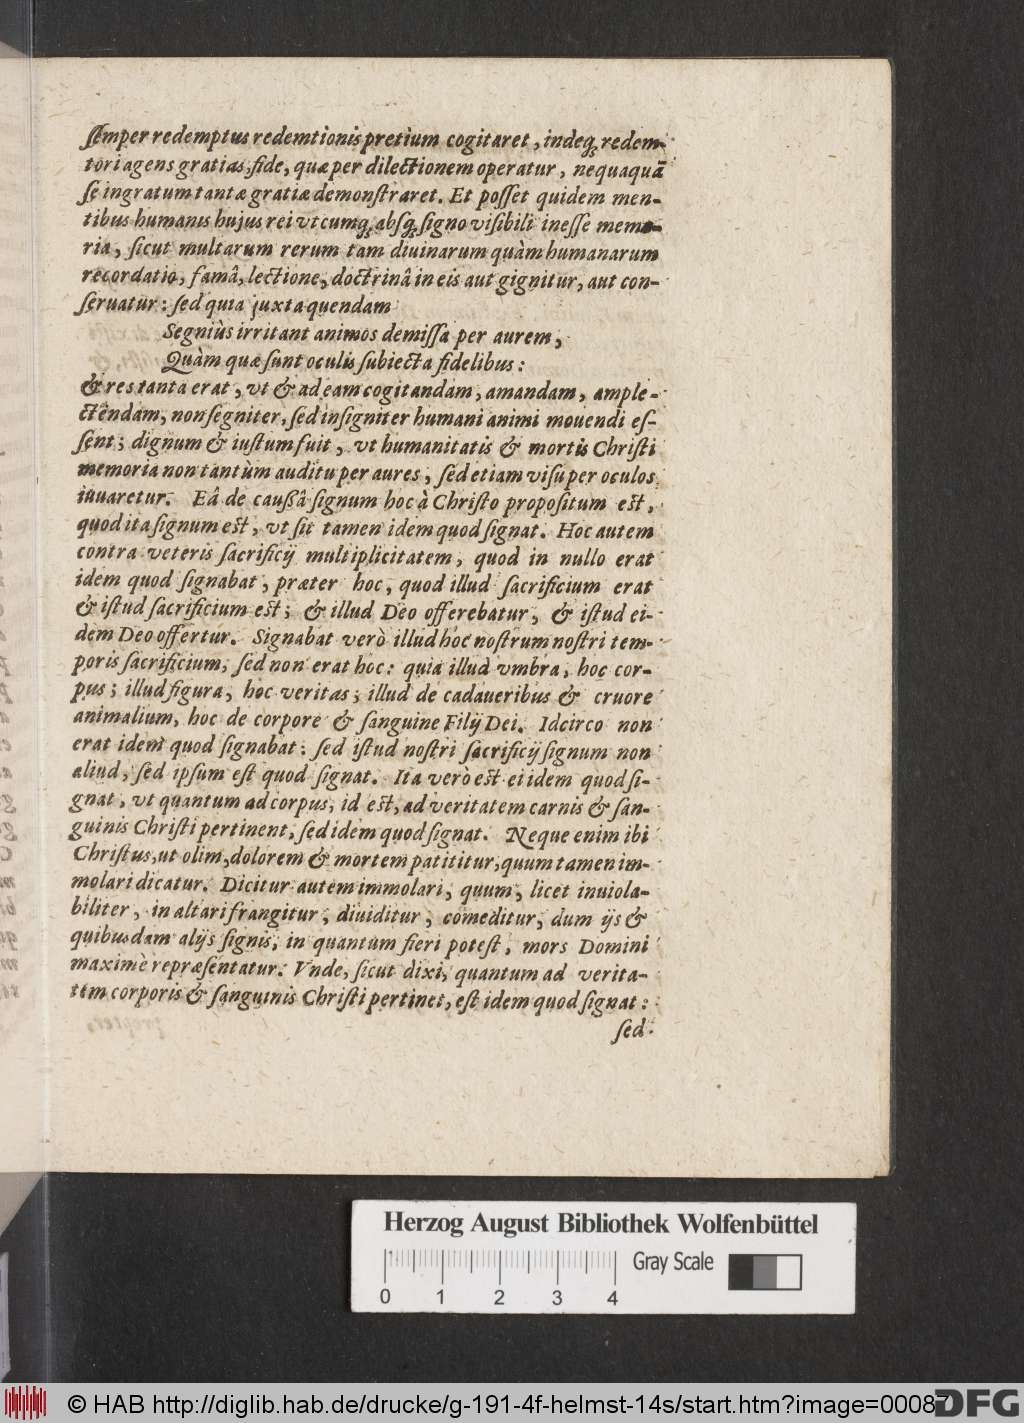 ſemper redemptus redemtionis pretium cogitaret, indeq́; redem-
tori agens gratias, fide, quæ per dilectionem operatur, nequaquā
ſe ingratum tantæ gratiæ demonſtraret. Et poſſet quidem men-
tibus humanis hujus rei vtcumq́; abſq́; ſigno viſibili ineſſe memo-
ria, ſicut multarum rerum tam diuinarum quàm humanarum
recordatio, famâ, lectione, doctrinâ in eis aut gignitur, aut con-
ſeruatur: ſed quia juxta quendam
Segniùs irritant animos demiſſa per aurem,
Quàm quæ ſunt oculis ſubiecta fidelibus:
& res tanta erat, vt & ad eam cogitandam, amandam, ample-
ctendam, non ſegniter, ſed inſigniter humani animi mouendi eſ-
ſent; dignum & iuſtum fuit, vt humanitatis & mortis Chriſti
memoria non tantùm auditu per aures, ſed etiam viſu per oculos
iuuaretur. Eâ de cauſſâ ſignum hoc à Chriſto propoſitum eſt,
quod ita ſignum eſt, vt ſit tamen idem quod ſignat. Hoc autem
contra veteris ſacrificij multiplicitatem, quod in nullo erat
idem quod ſignabat, præter hoc, quod illud ſacrificium erat
& iſtud ſacrificium eſt; & illud Deo offerebatur, & iſtud ei-
dem Deo offertur. Signabat verò illud hoc noſtrum noſtri tem-
poris ſacrificium, ſed non erat hoc: quia illud vmbra, hoc cor-
pus; illud figura, hoc veritas; illud de cadaueribus & cruore
animalium, hoc de corpore & ſanguine Filij Dei. Idcirco non
erat idem quod ſignabat: ſed iſtud noſtri ſacrificij ſignum non
aliud, ſed ipſum eſt quod ſignat. Ita verò eſt ei idem quod ſi-
gnat, vt quantum ad corpus, id eſt, ad veritatem carnis & ſan-
guinis Chriſti pertinent, ſed idem quod ſignat. Neque enim ibi
Chriſtus, ut olim, dolorem & mortem patititur, quum tamen im-
molari dicatur. Dicitur autem immolari, quum, licet inuiola-
biliter, in altari frangitur, diuiditur, comeditur, dum ijs &
quibusdam alijs ſignis, in quantum fieri poteſt, mors Domini
maximè repræſentatur. Vnde, ſicut dixi, quantum ad verita-
tem corporis & ſanguinis Chriſti pertinet, eſt idem quod ſignat:
ſed
Herzog August Bibliothek Wolfenbüttel
Gray Scale
0 1 2 3 4
© HAB http://diglib.hab.de/drucke/g-191-4f-helmst-14s/start.htm?image=00087
DFG